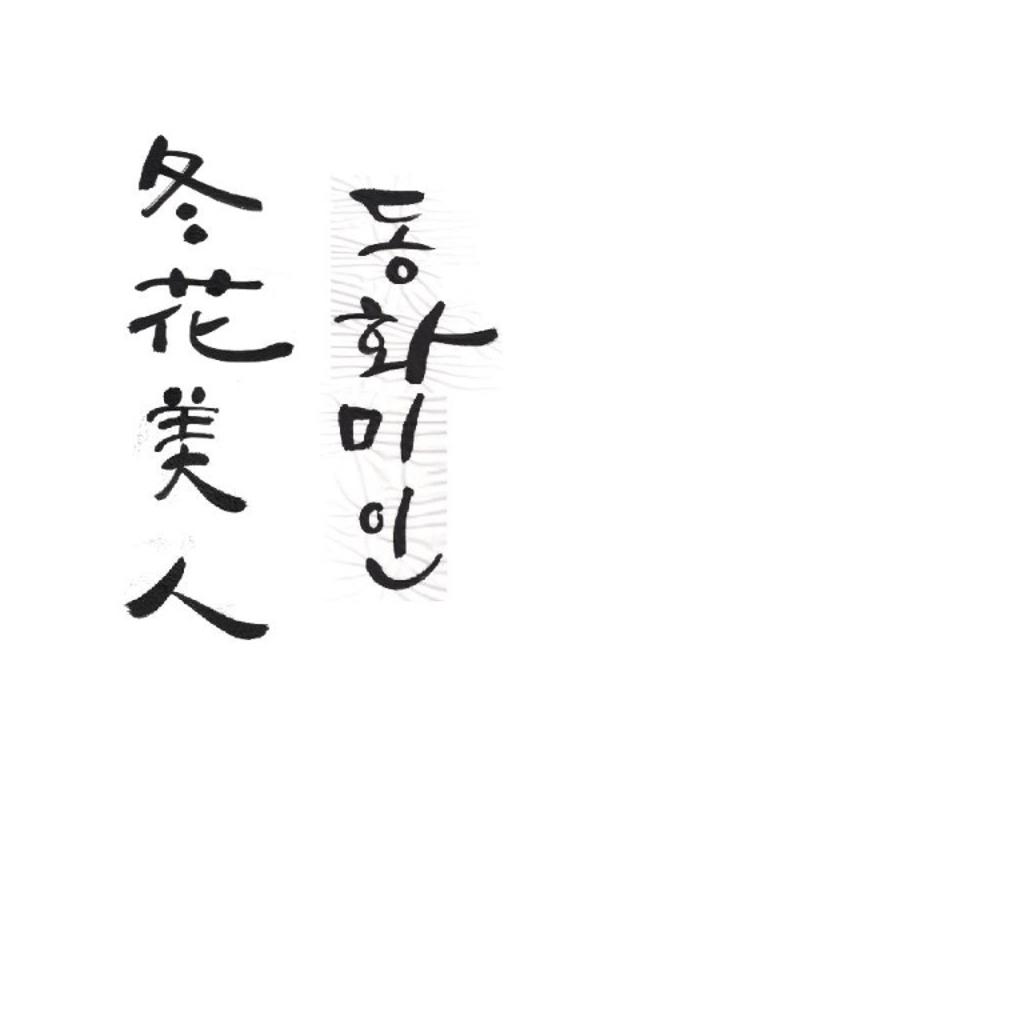 冬花美人
동화미인